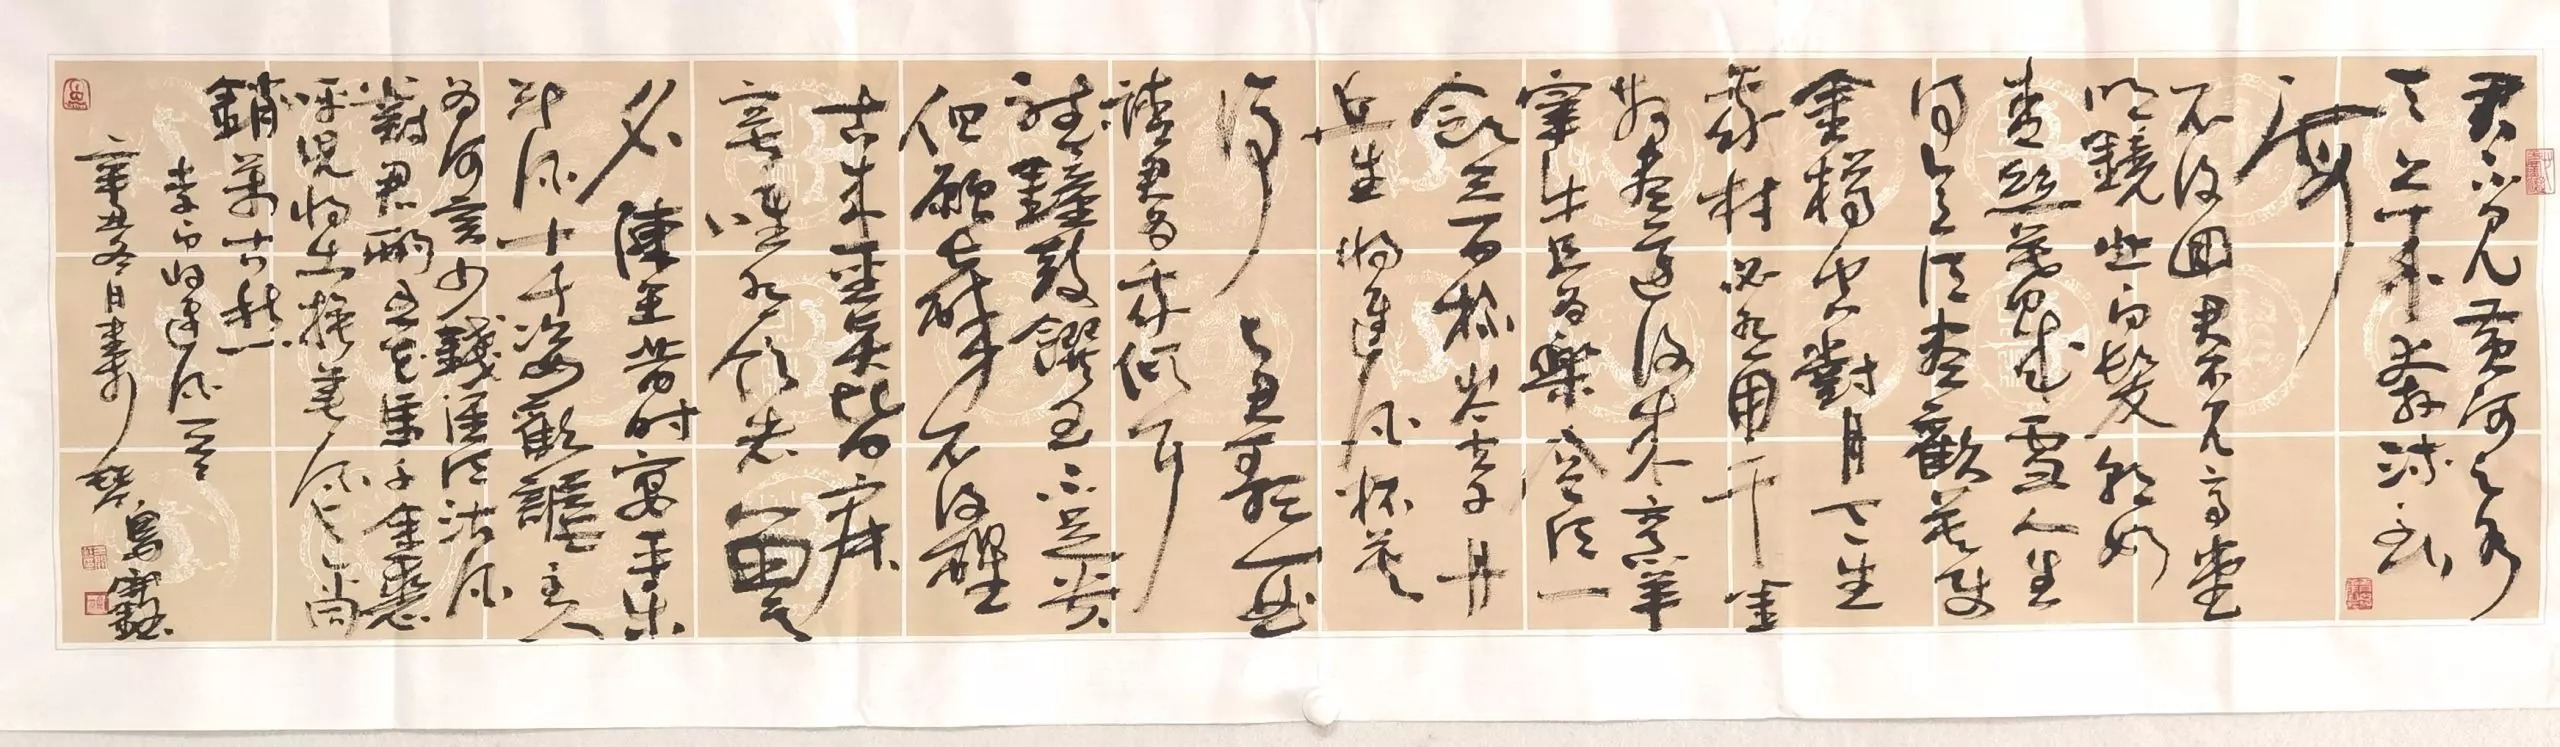 君不见黄河之水
天上来奔流到
海
不復回君不见高堂
明鏡悲白髮朝如
青丝暮成雪人生
得意须盡歡莫使
金樽空對月天生
我材必有用千金
散盡還復来烹羊
宰牛且为樂会须一
飲三百杯岑夫子丹
丘生将進酒杯莫
停
与君歌一曲
請君为我傾耳
聽鐘鼓饌玉不足贵
但願長醉不復醒
古来聖贤皆寂
寞唯有飲者留其
名陳王昔时宴平乐
斗酒十千恣歡謔主人
为何言少錢徑须沽酒
對君酌五花馬千金裘
呼児将出换美酒与尔同
銷萬古愁
李白将進酒一首
辛丑冬日书於